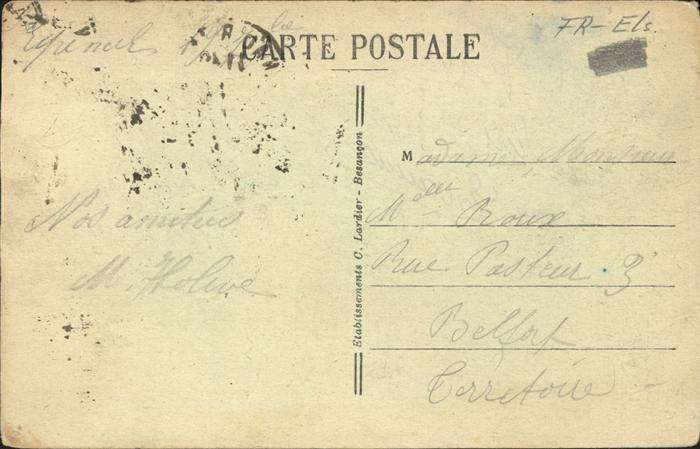 CARTE POSTALE
FR-Els.
Nos amitiés
M.
Etablissements C. Lardier - Besançon
Madame
Roux
Rue Pasteur 3
Belfort
Terretoire